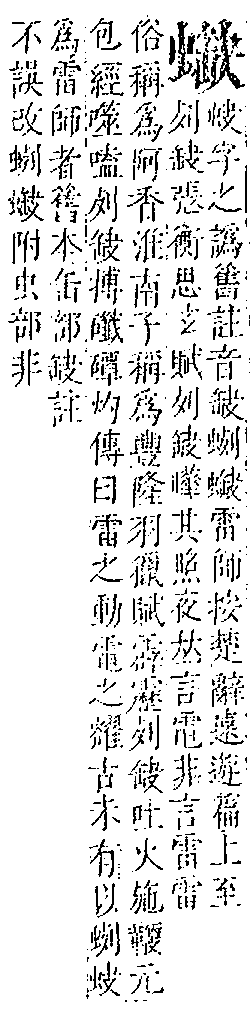 字之譌舊註音缺蜊雷師按楚辭遠遊徧上至
列缺張衡思玄賦列缺曄其照夜𠀤言電非言雷雷
俗稱爲阿香淮南子稱爲豐隆羽獵賦霹靂列缺吐火施鞭元
包經噬嗑列缺搏灼傳曰雷之動電之耀古未有以蜊
爲雷師者舊本缶部缺註
不誤改蜊附虫部非